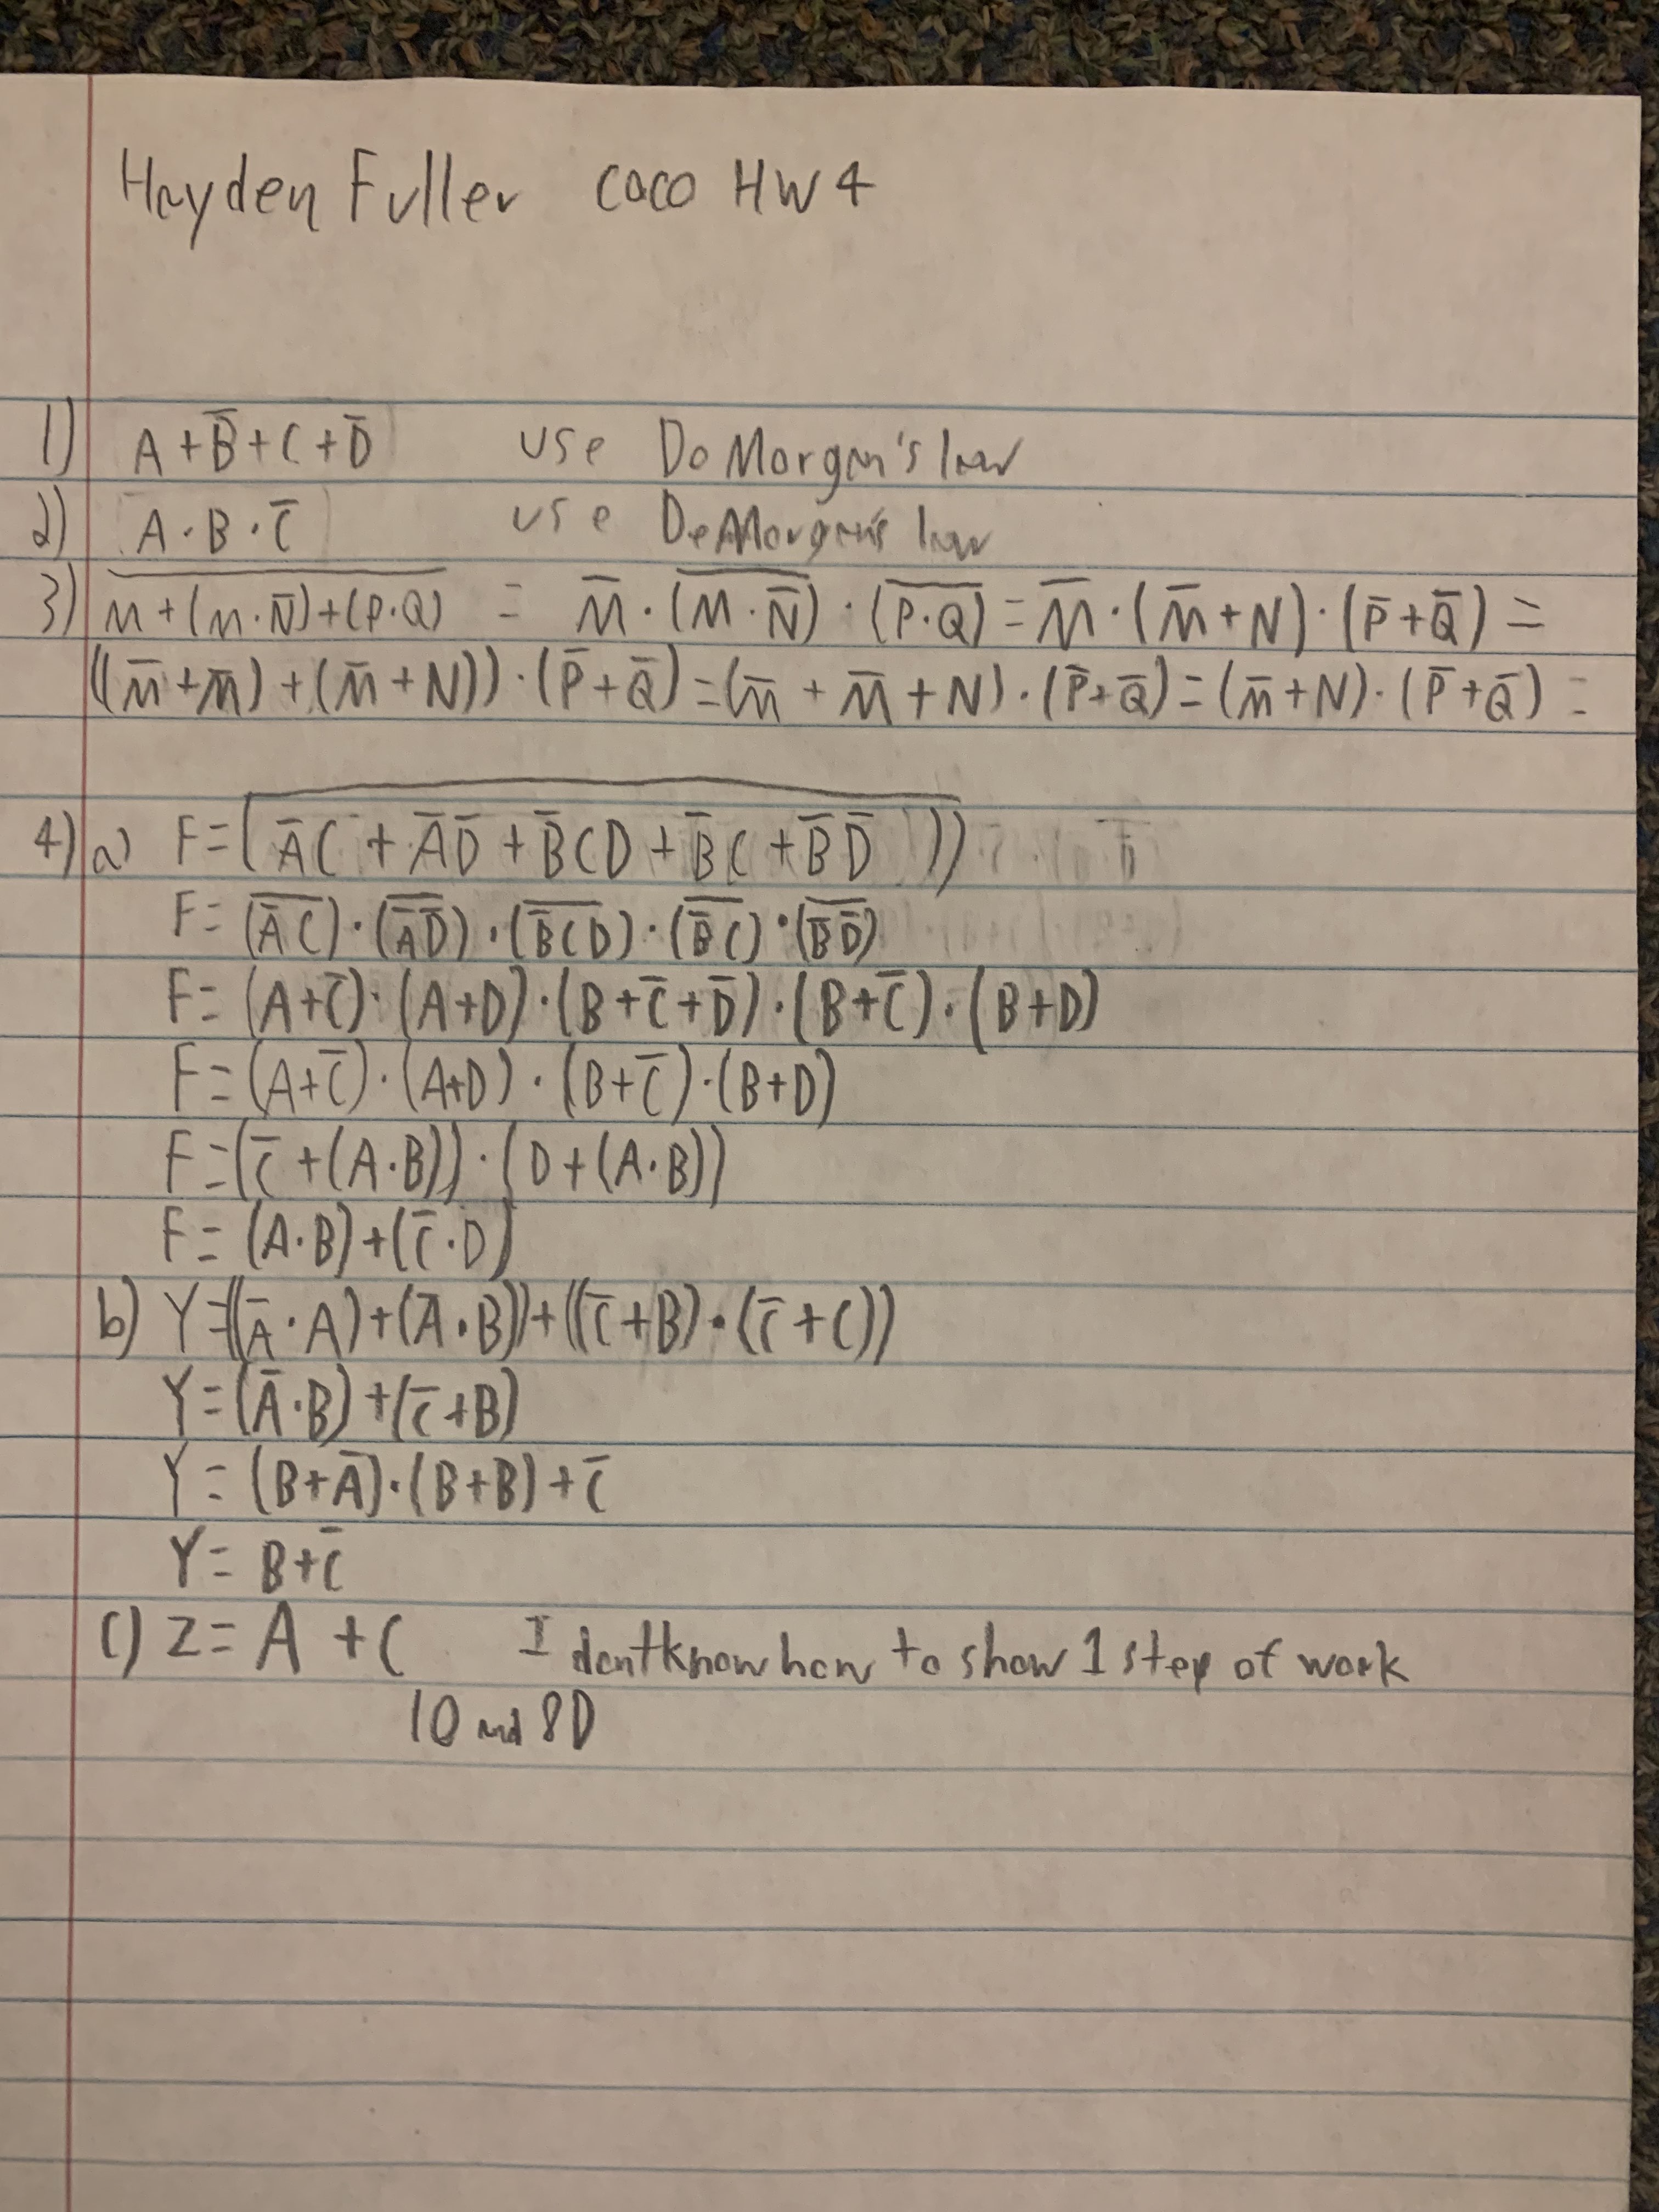 Hayden Fuller CoCO HW 4
1) A + B̅ + C + D̅ use DeMorgan's law
2) A · B · C̅ use DeMorgan's law
3) \overline{M + (M · N̅) + (P · Q)} = M̅ · \overline{(M · N̅)} · \overline{(P · Q)} = M̅ · (M̅ + N) · (P̅ + Q̅) =
((M̅ + M̅) + (M̅ + N)) · (P̅ + Q̅) = (M̅ + M̅ + N) · (P̅ + Q̅) = (M̅ + N) · (P̅ + Q̅) =
4) a) F = \overline{(A̅C + A̅D̅ + B̅CD + B̅C + B̅D̅))}
F = \overline{(A̅C)} · \overline{(A̅D̅)} · \overline{(B̅CD)} · \overline{(B̅C)} · \overline{(B̅D̅)}
F = (A + C̅) · (A + D) · (B + C̅ + D̅) · (B + C̅) · (B + D)
F = (A + C̅) · (A + D) · (B + C̅) · (B + D)
F = (C̅ + (A · B)) · (D + (A · B))
F = (A · B) + (C̅ · D)
b) Y = ((A̅ · A) + (A̅ · B)) + ((C̅ + B) · (C̅ + C))
Y = (A̅ · B) + (C̅ + B)
Y = (B + A̅) · (B + B) + C̅
Y = B + C̅
c) Z = A + C I dont know how to show 1 step of work
10 and 8D